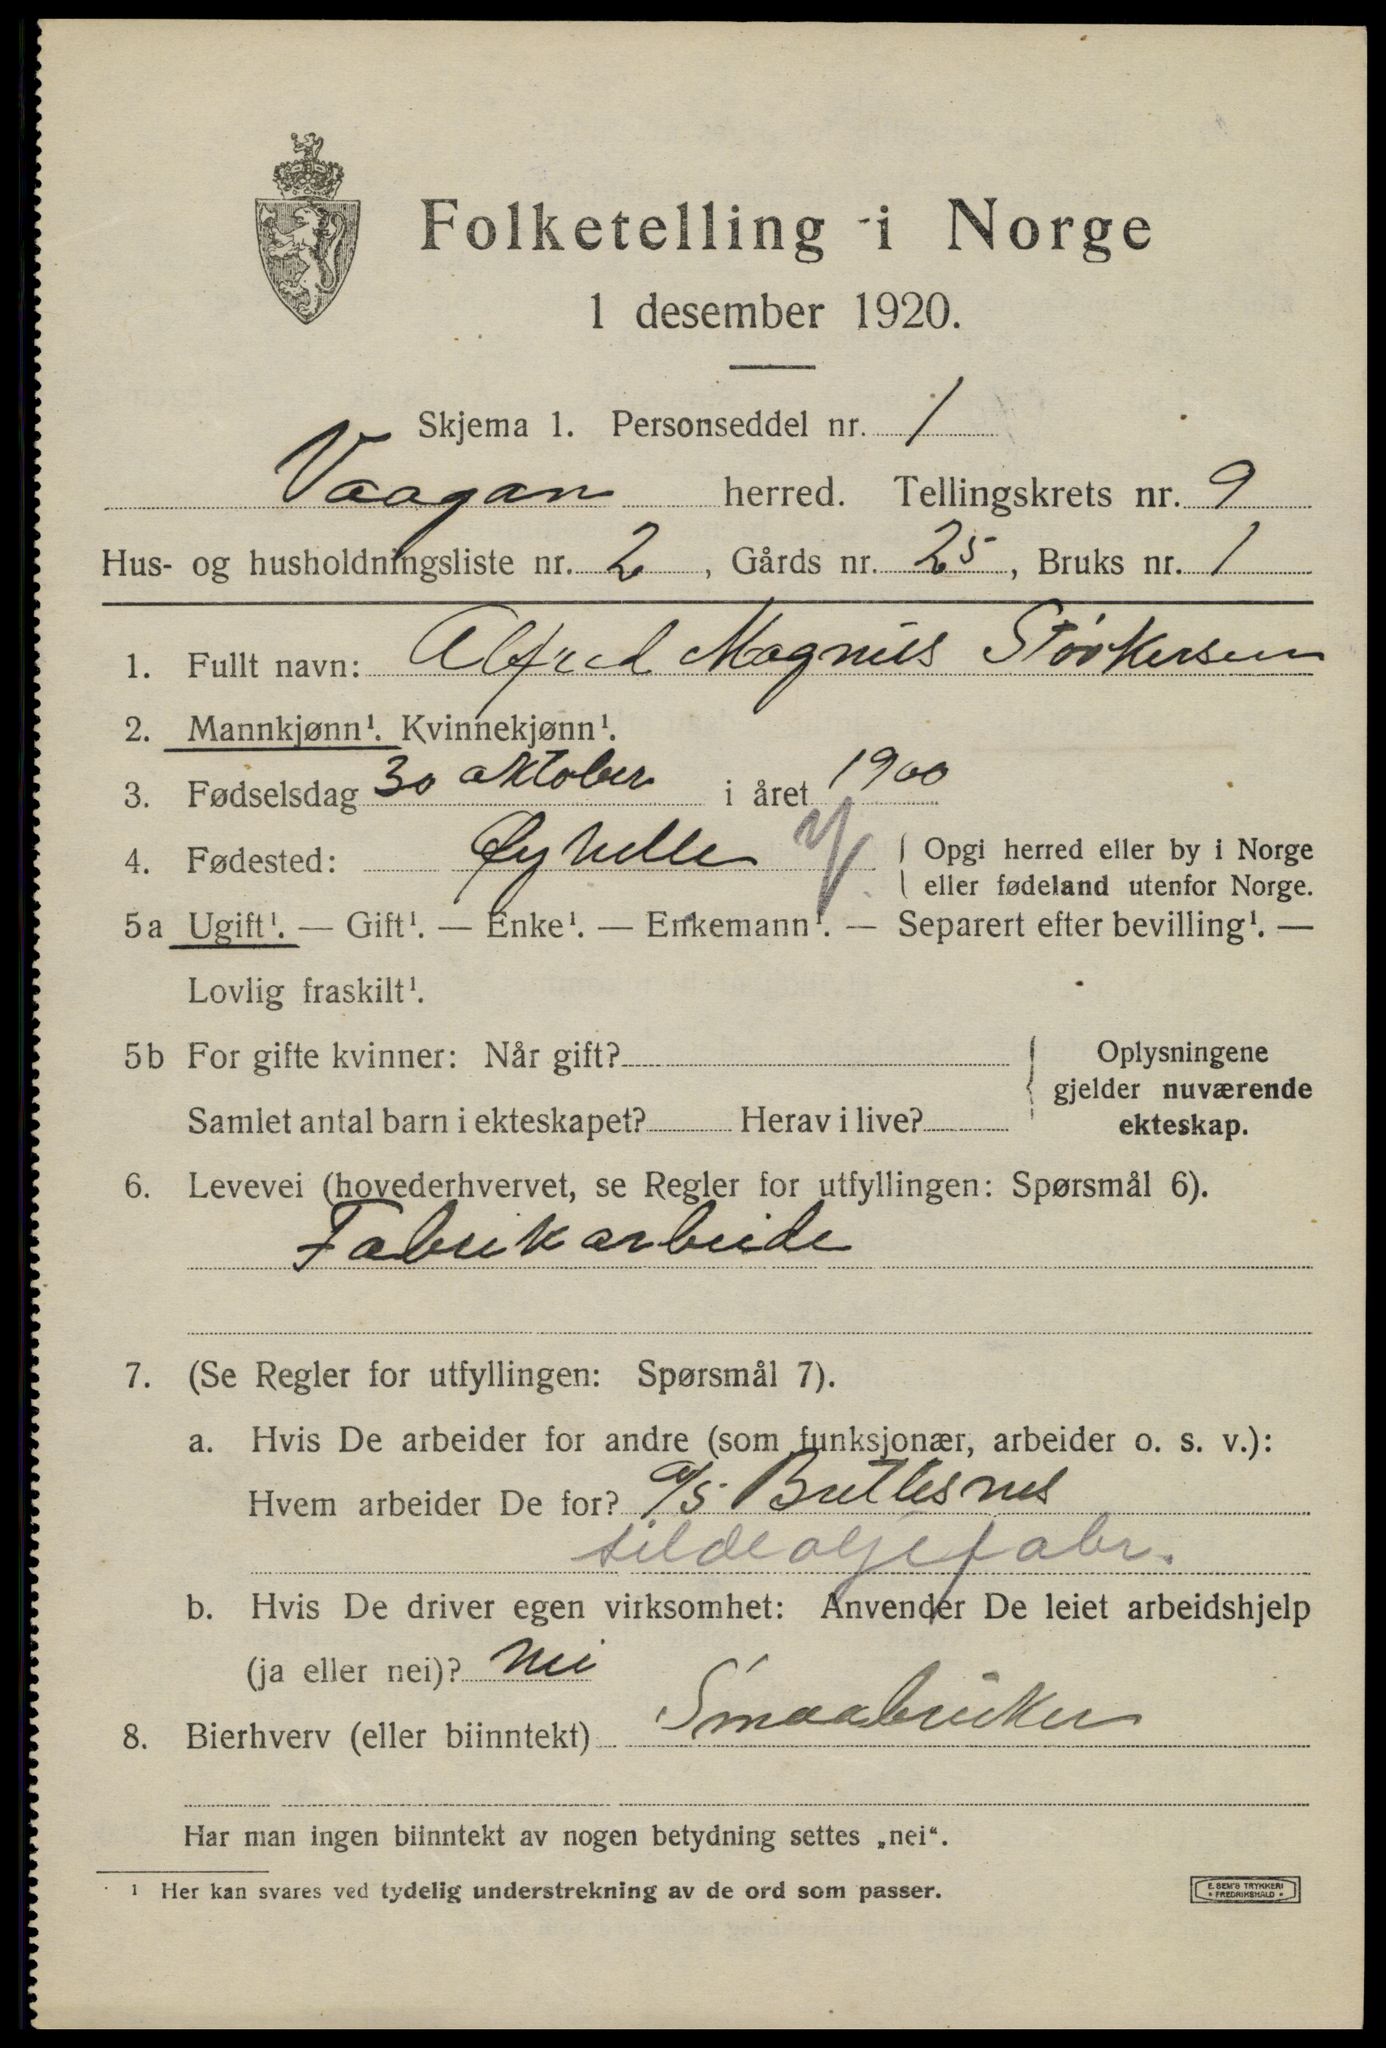 Folketelling i Norge
1 desember 1920.
Skjema 1. Personseddel nr. 1
Vaagan herred. Tellingskrets nr. 9
Hus- og husholdningsliste nr. 2, Gårds nr. 25, Bruks nr. 1
1. Fullt navn: Alfred Magnus Størkersen
2. Mannkjønn¹. Kvinnekjønn¹.
3. Fødselsdag 30 oktober i året 1900
4. Fødested: Øyhelle Opgi herred eller by i Norge
eller fødeland utenfor Norge.
5a Ugift¹. — Gift¹. — Enke¹. — Enkemann¹. — Separert efter bevilling¹. —
Lovlig fraskilt¹.
5b For gifte kvinner: Når gift? Oplysningene
gjelder nuværende
Samlet antal barn i ekteskapet? Herav i live? ekteskap.
6. Levevei (hovederhvervet, se Regler for utfyllingen: Spørsmål 6).
Fabrikarbeide
7. (Se Regler for utfyllingen: Spørsmål 7).
a. Hvis De arbeider for andre (som funksjonær, arbeider o. s. v.):
Hvem arbeider De for? a/s Brettesnes
sildeoljefabr.
b. Hvis De driver egen virksomhet: Anvender De leiet arbeidshjelp
(ja eller nei)? nei
8. Bierhverv (eller biinntekt) Smaabruker
Har man ingen biinntekt av nogen betydning settes „nei“.
¹ Her kan svares ved tydelig understrekning av de ord som passer.
E. SEM'S TRYKKERI
• FREDRIKSHALD •